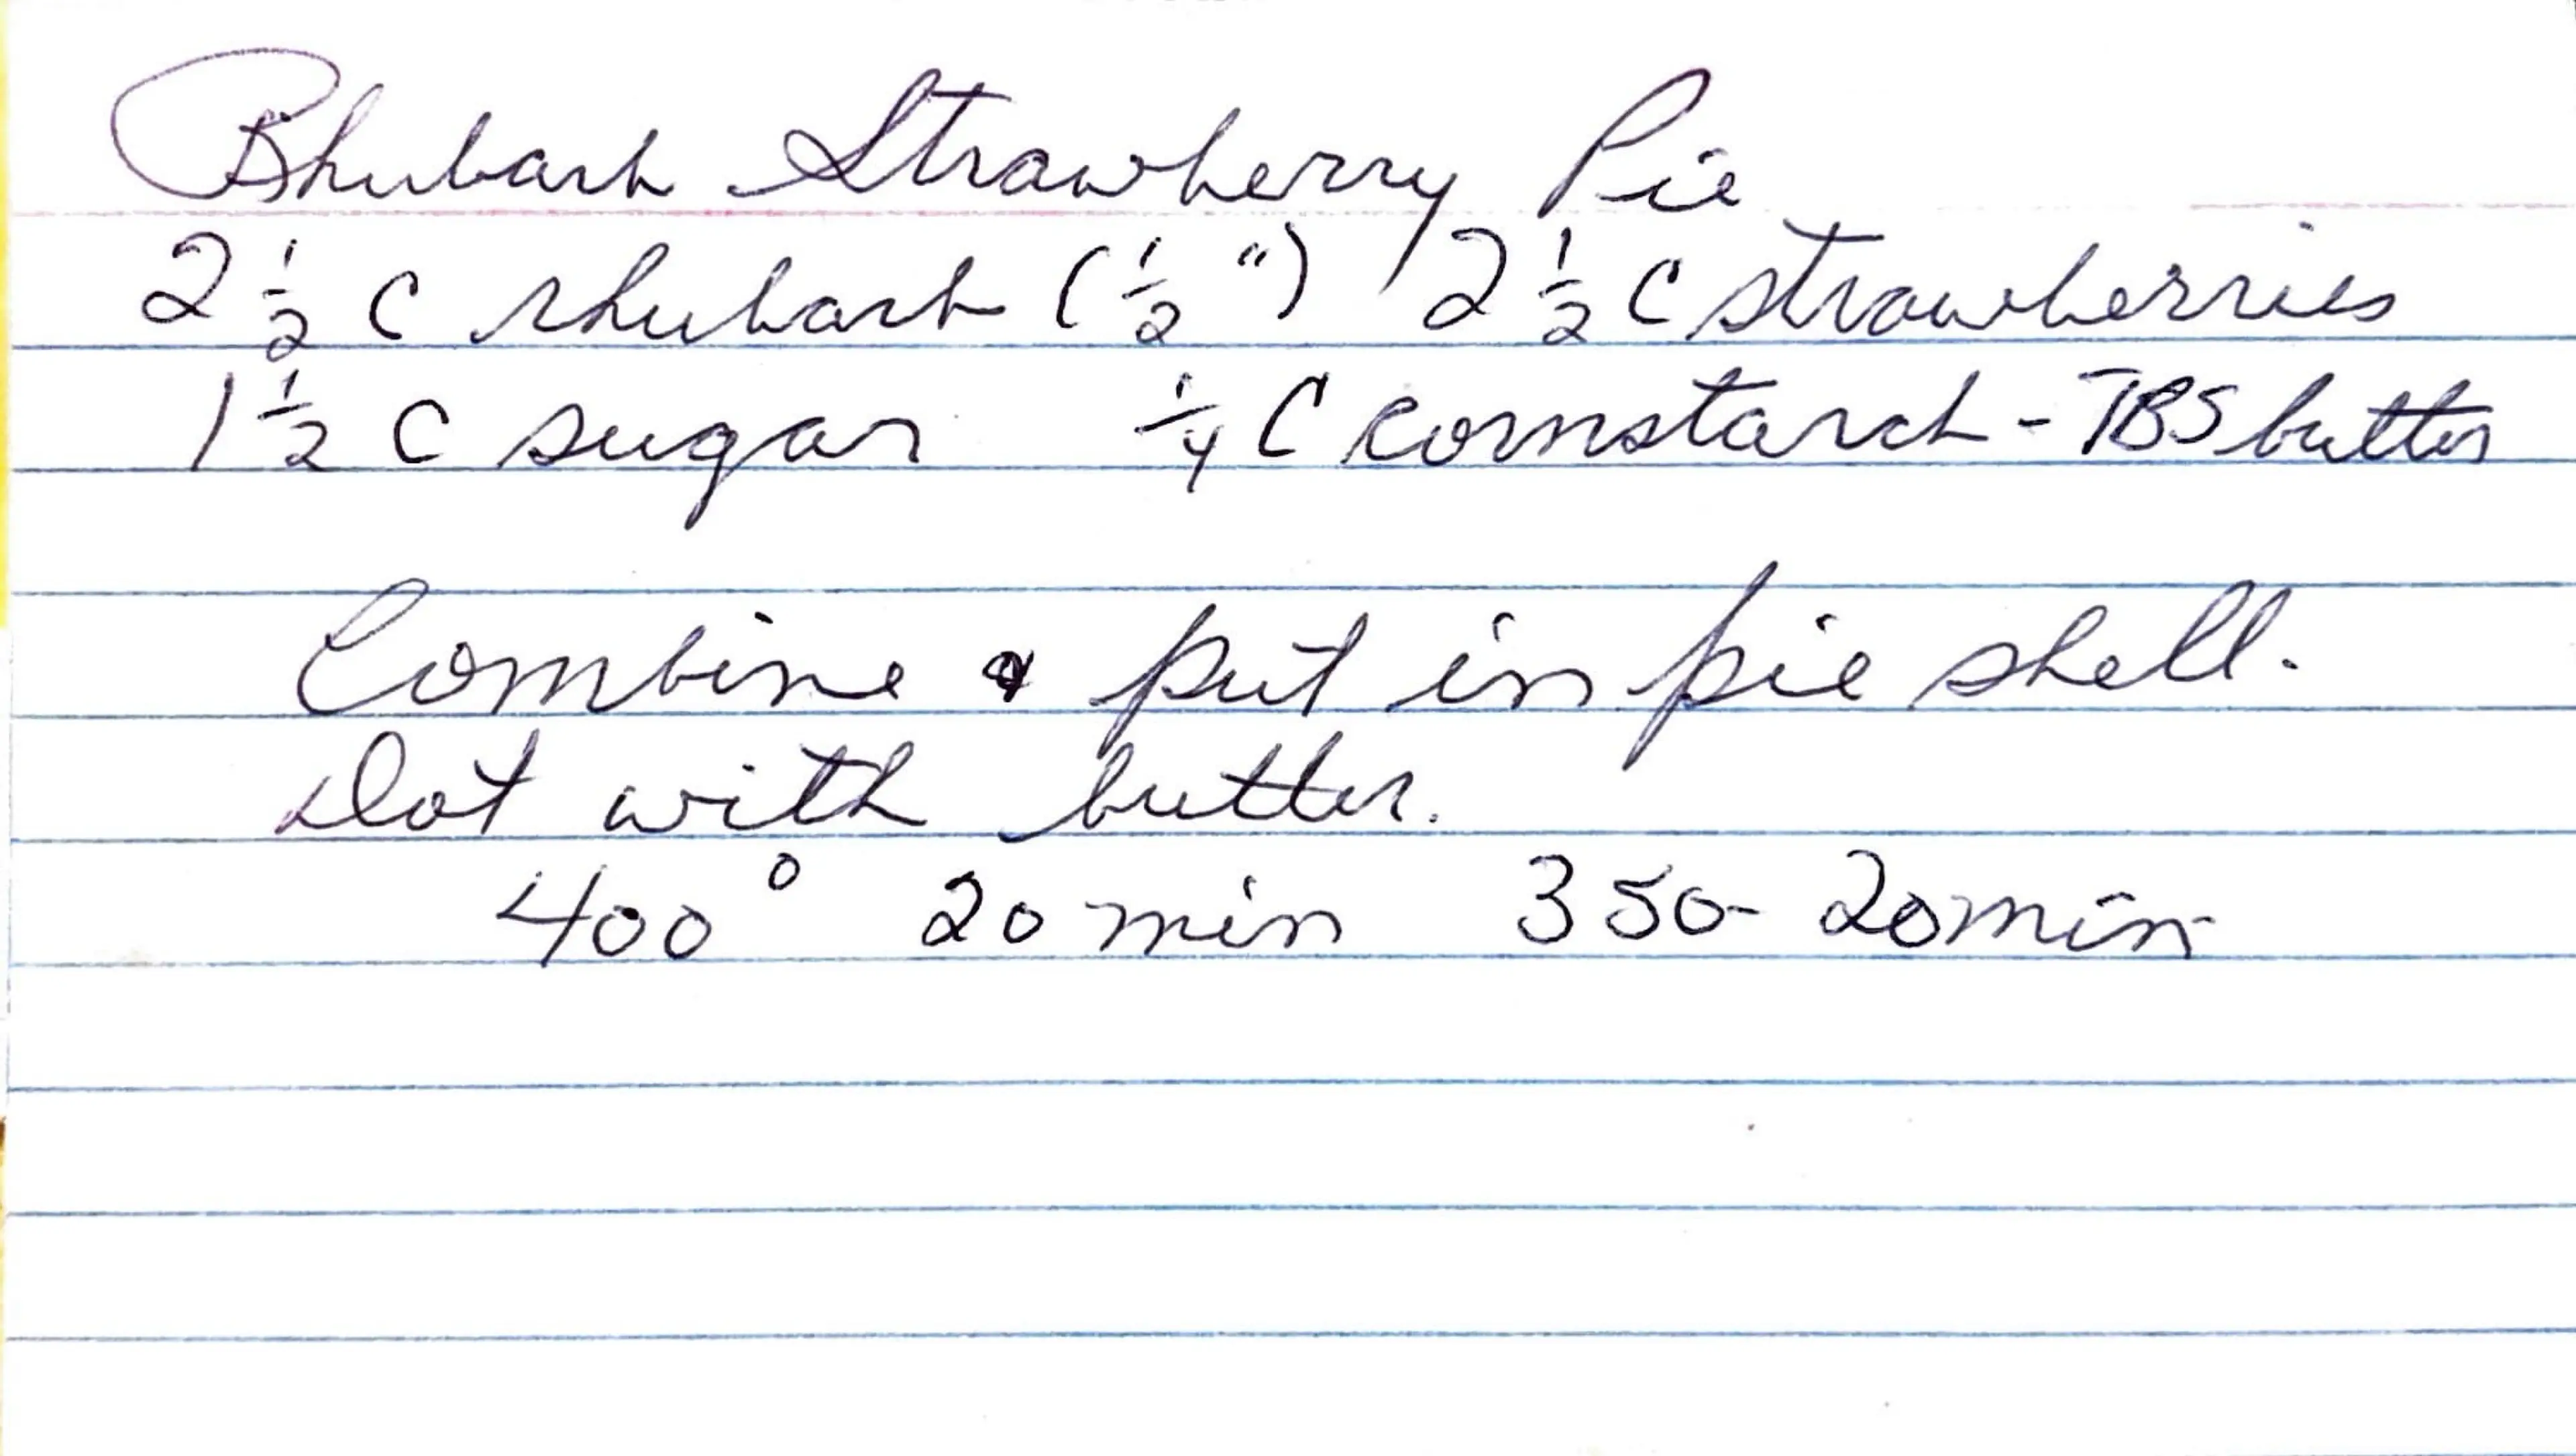 Rhubarb Strawberry Pie
2 1/2 C rhubarb (1/2 ") 2 1/2 C strawberries
1 1/2 C sugar 1/4 C cornstarch - TBS butter
Combine & put in pie shell.
Dot with butter.
400° 20 min 350- 20 min